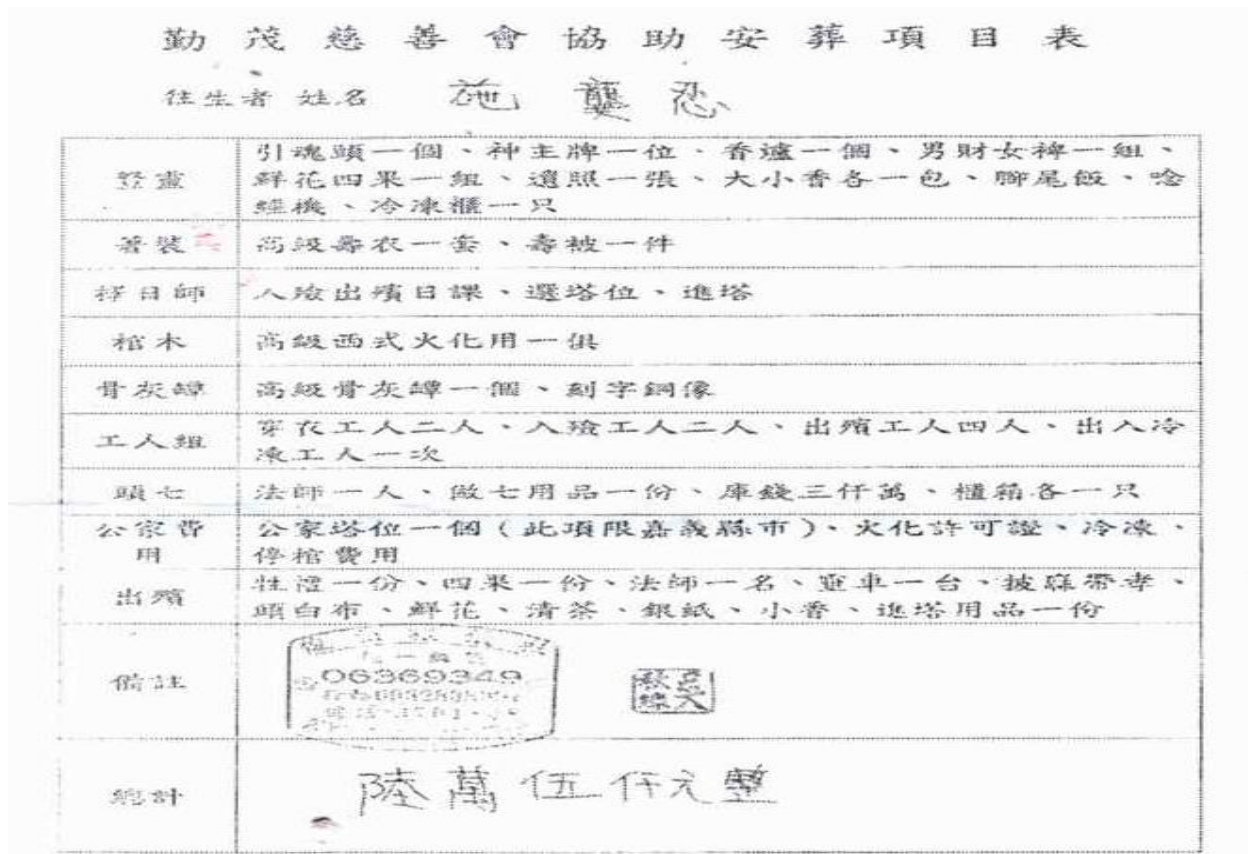 勤茂慈善會協助安葬項目表
往生者 姓名 施龔忍
豎靈
引魂頭一個、神主牌一位、香爐一個、男財女裨一組、
鮮花四果一組、遺照一張、大小香各一包、腳尾飯、唸
經機、冷凍櫃一只
著裝
高級壽衣一套、壽被一件
擇日師
入殮出殯日課、選塔位、進塔
棺木
高級西式火化用一俱
骨灰罈
高級骨灰罈一個、刻字銅像
工人組
穿衣工人二人、入殮工人二人、出殯工人四人、出入冷
凍工人一次
頭七
法師一人、做七用品一份、庫錢三仟萬、櫃箱各一只
公家費
用
公家塔位一個(此項限嘉義縣市)、火化許可證、冷凍、
停棺費用
出殯
牲禮一份、四果一份、法師一名、靈車一台、披麻帶孝、
頭白布、鮮花、清茶、銀紙、小香、進塔用品一份
備註
06369349
總計
陸萬伍仟元整